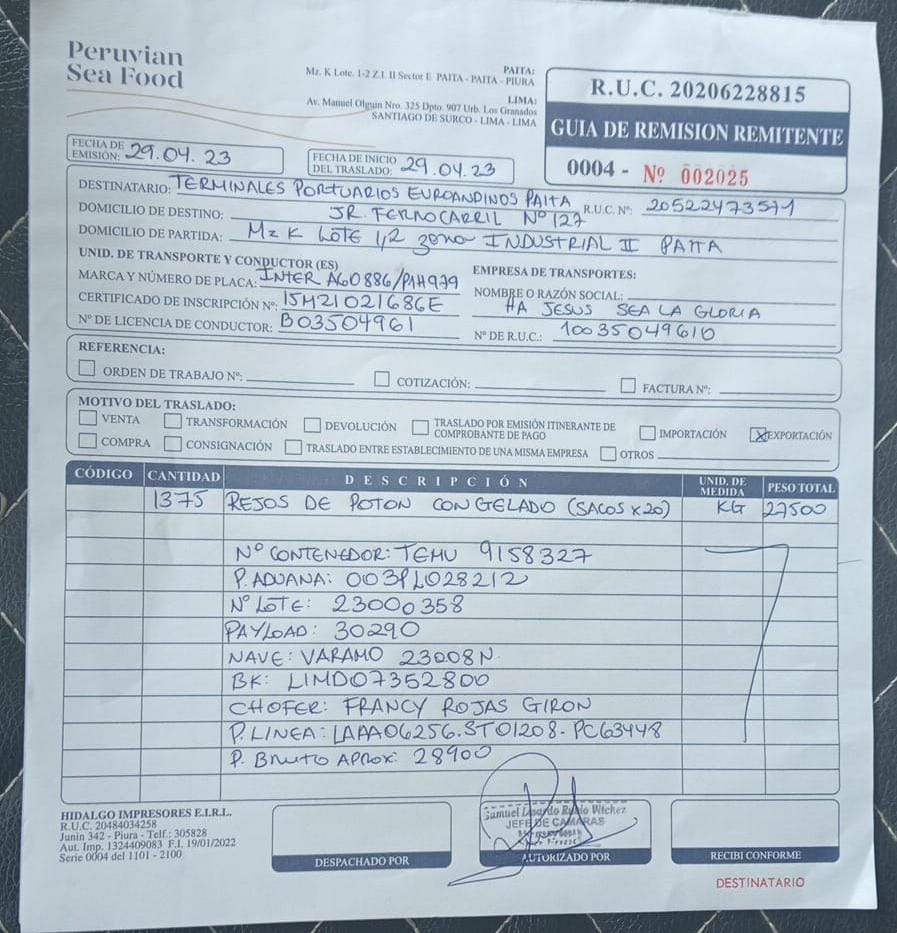 Peruvian
Sea Food
PAITA:
Mz. K Lote. 1-2 Z.I. II Sector E PAITA - PAITA - PIURA
LIMA:
Av. Manuel Olguin Nro. 325 Dpto. 907 Urb. Los Granados
SANTIAGO DE SURCO - LIMA - LIMA
R.U.C. 20206228815
GUIA DE REMISION REMITENTE
0004 - Nº 002025
FECHA DE EMISIÓN: 29.04.23
FECHA DE INICIO DEL TRASLADO: 29.04.23
DESTINATARIO: TERMINALES PORTUARIOS EUROANDINOS PAITA R.U.C. Nº: 20522473571
DOMICILIO DE DESTINO: JR. FERROCARRIL Nº 127
DOMICILIO DE PARTIDA: Mz K LOTE 1,2 zona INDUSTRIAL II PAITA
UNID. DE TRANSPORTE Y CONDUCTOR (ES)
MARCA Y NÚMERO DE PLACA: INTER AGO886/P1H979
CERTIFICADO DE INSCRIPCIÓN Nº: 15M21021686E
Nº DE LICENCIA DE CONDUCTOR: B03504961
EMPRESA DE TRANSPORTES:
NOMBRE O RAZÓN SOCIAL:
HA JESUS SEA LA GLORIA
Nº DE R.U.C.: 10035049610
REFERENCIA:
ORDEN DE TRABAJO Nº: COTIZACIÓN: FACTURA Nº:
MOTIVO DEL TRASLADO:
VENTA TRANSFORMACIÓN DEVOLUCIÓN TRASLADO POR EMISIÓN ITINERANTE DE COMPROBANTE DE PAGO IMPORTACIÓN X EXPORTACIÓN
COMPRA CONSIGNACIÓN TRASLADO ENTRE ESTABLECIMIENTO DE UNA MISMA EMPRESA OTROS
CÓDIGO CANTIDAD DESCRIPCIÓN UNID. DE MEDIDA PESO TOTAL
1375 REJOS DE POTON CONGELADO (SACOS x20) KG 27500
Nº CONTENEDOR: TEMU 9158327
P. ADUANA: 003PL028212
Nº LOTE: 23000358
PAYLOAD: 30290
NAVE: VARAMO 23008N
BK: LIMD07352800
CHOFER: FRANCY ROJAS GIRON
P. LINEA: LAAA06256.ST01208-PC63448
P. Bruto Aprox: 28900
HIDALGO IMPRESORES E.I.R.L.
R.U.C. 20484034258
Junin 342 - Piura - Telf.: 305828
Aut. Imp. 1324409083 F.I. 19/01/2022
Serie 0004 del 1101 - 2100
DESPACHADO POR
Samuel Lisardo Rubio Vilchez
JEFE DE CAMARAS
AUTORIZADO POR
RECIBI CONFORME
DESTINATARIO